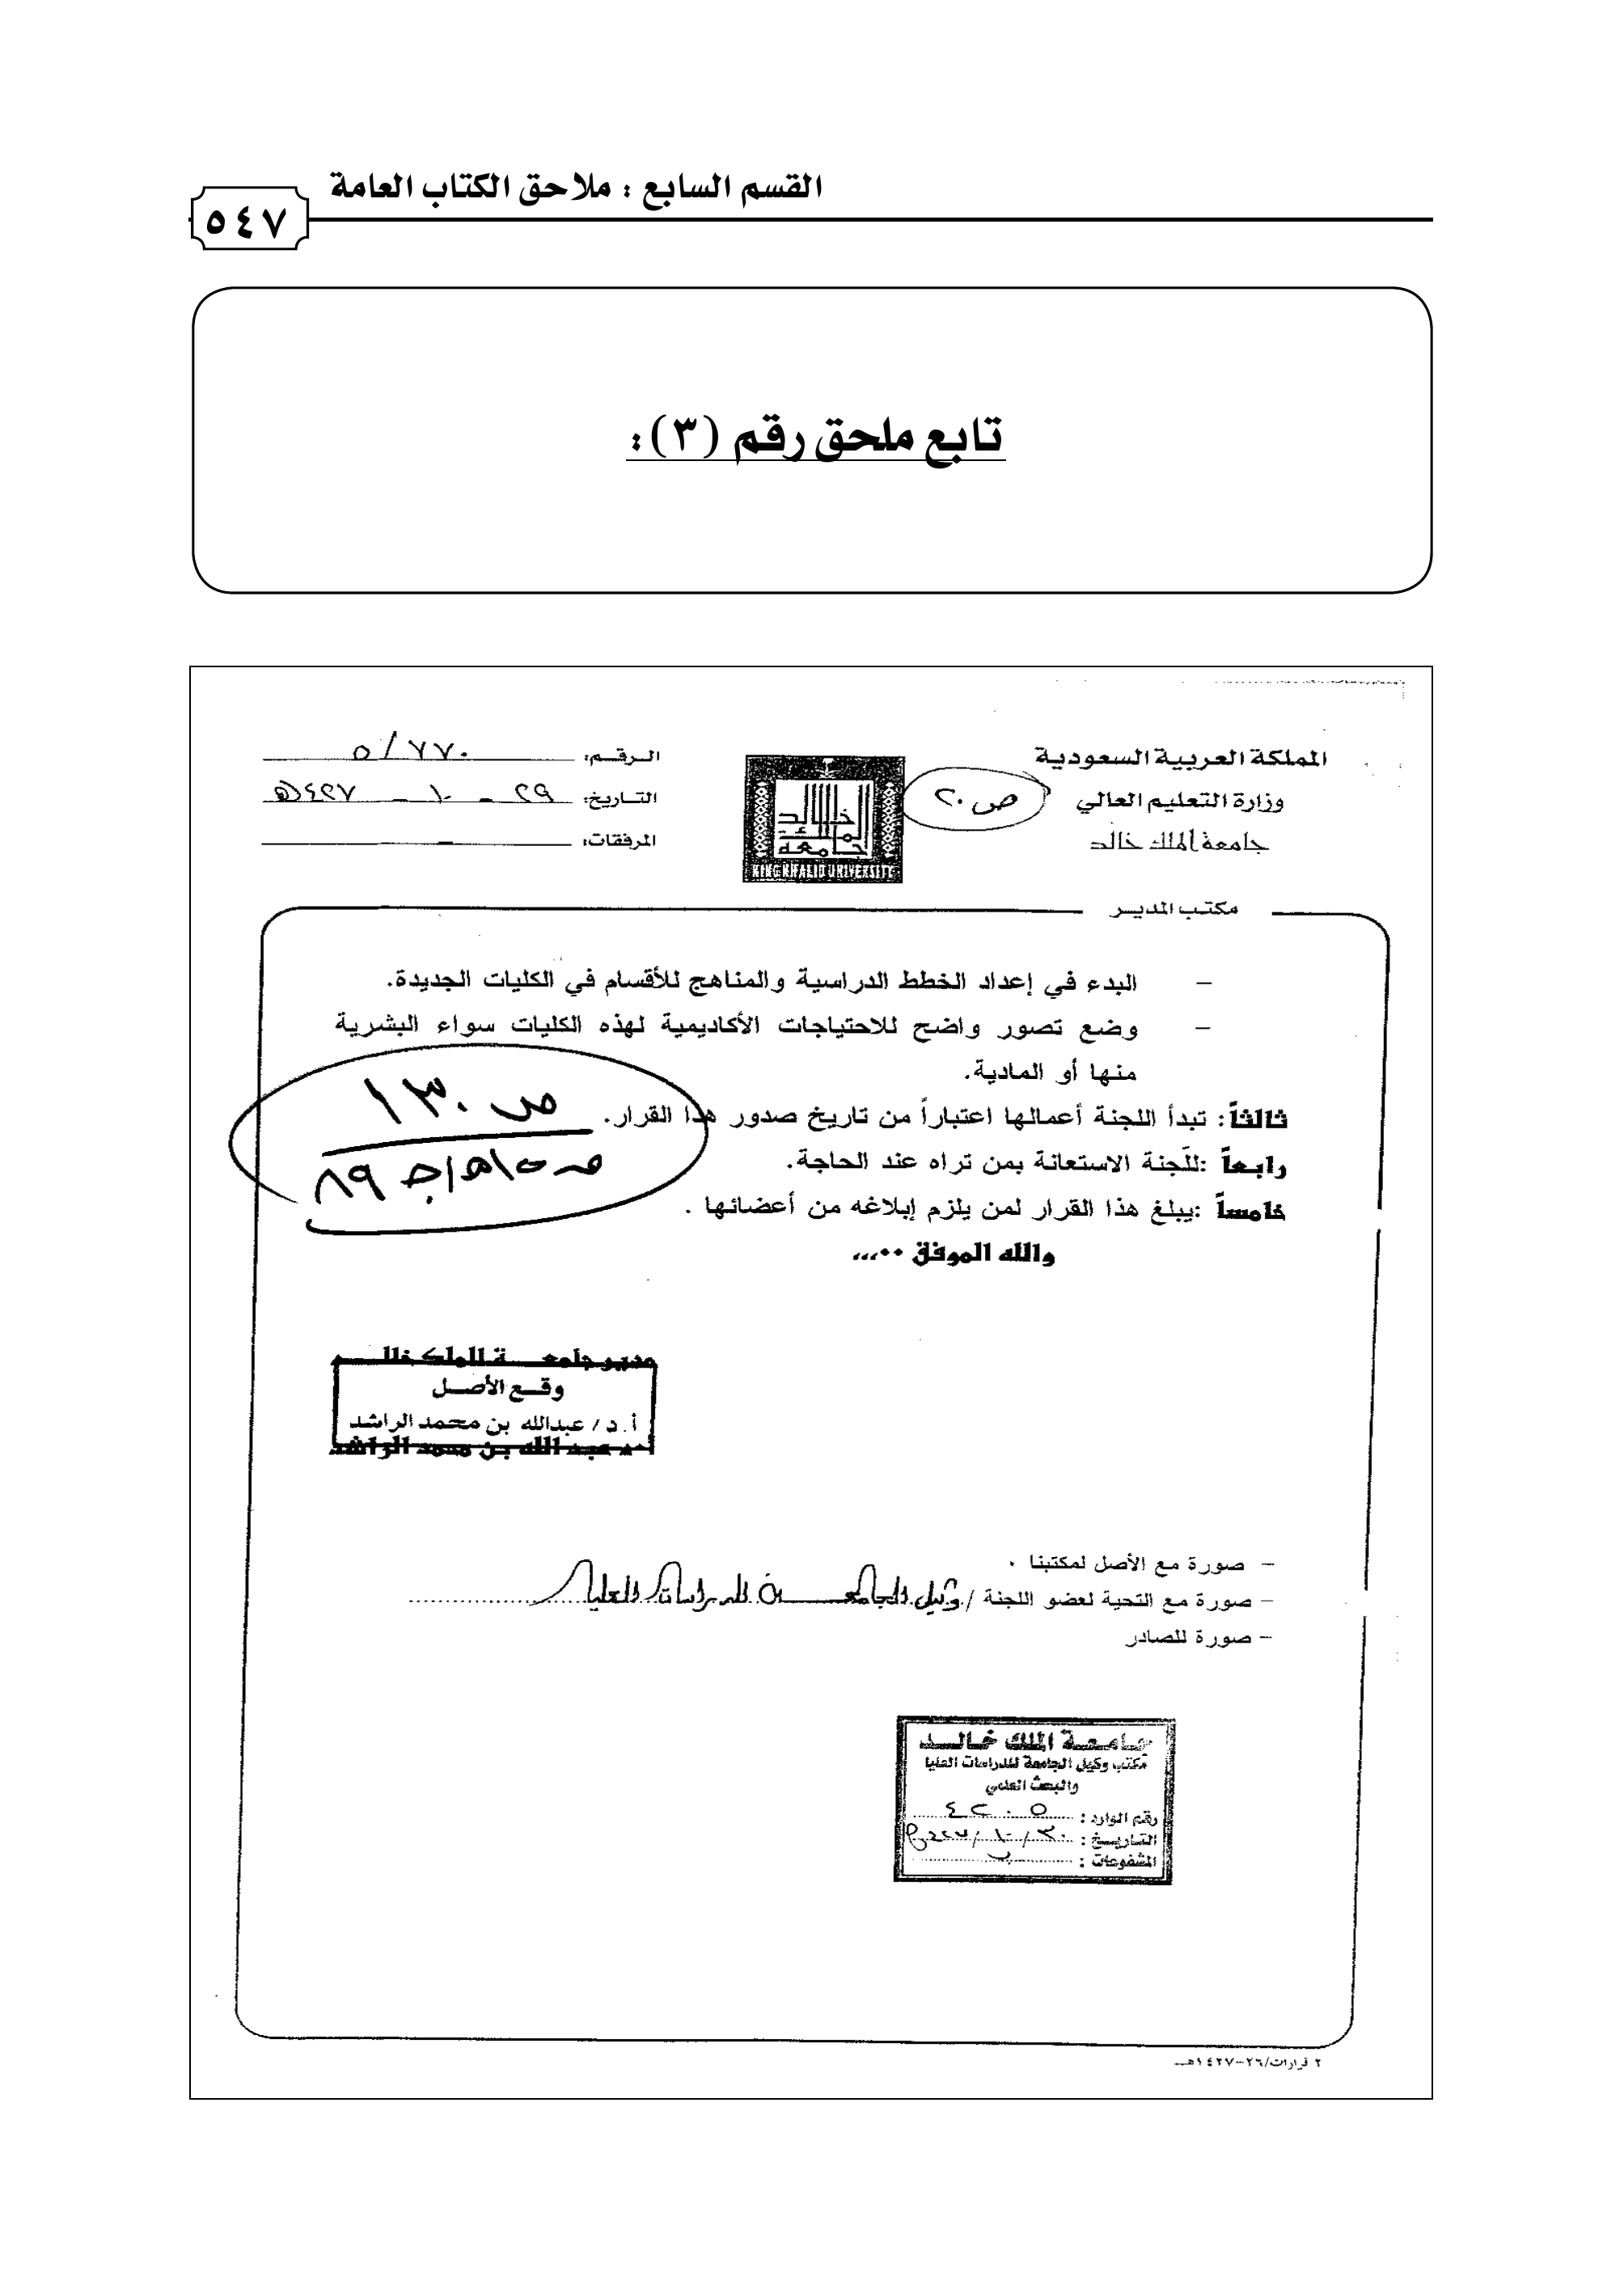 القسم السابع : ملاحق الكتاب العامة
٥٤٧
تابع ملحق رقم (٣):
المملكة العربية السعودية
وزارة التعليم العالي
جامعة الملك خالد
مكتب المدير
ص ٢٠
KING KHALID UNIVERSITY
الرقم: ٥/٧٧٠
التاريخ: ٢٩ - ١٠ - ١٤٢٧هـ
المرفقات: -
- البدء في إعداد الخطط الدراسية والمناهج للأقسام في الكليات الجديدة.
- وضع تصور واضح للاحتياجات الأكاديمية لهذه الكليات سواء البشرية
منها أو المادية.
ثالثاً: تبدأ اللجنة أعمالها اعتباراً من تاريخ صدور هذا القرار.
رابعاً :للّجنة الاستعانة بمن تراه عند الحاجة.
خامساً :يبلغ هذا القرار لمن يلزم إبلاغه من أعضائها .
والله الموفق ٠٠،،،
ص ١٣٠
مدير جامعة الملك خالد
وقع الأصل
أ.د/ عبدالله بن محمد الراشد
عبد الله بن محمد الراشد
- صورة مع الأصل لمكتبنا ٠
- صورة مع التحية لعضو اللجنة / وكيل الجامعة للدراسات العليا
- صورة للصادر
جامعة الملك خالد
مكتب وكيل الجامعة للدراسات العليا
والبحث العلمي
رقم الوارد : ٤٢٠٥
التاريخ : ٣٠/١٠/
المشفوعات :
٢ قرارات/٢٦-١٤٢٧هـ